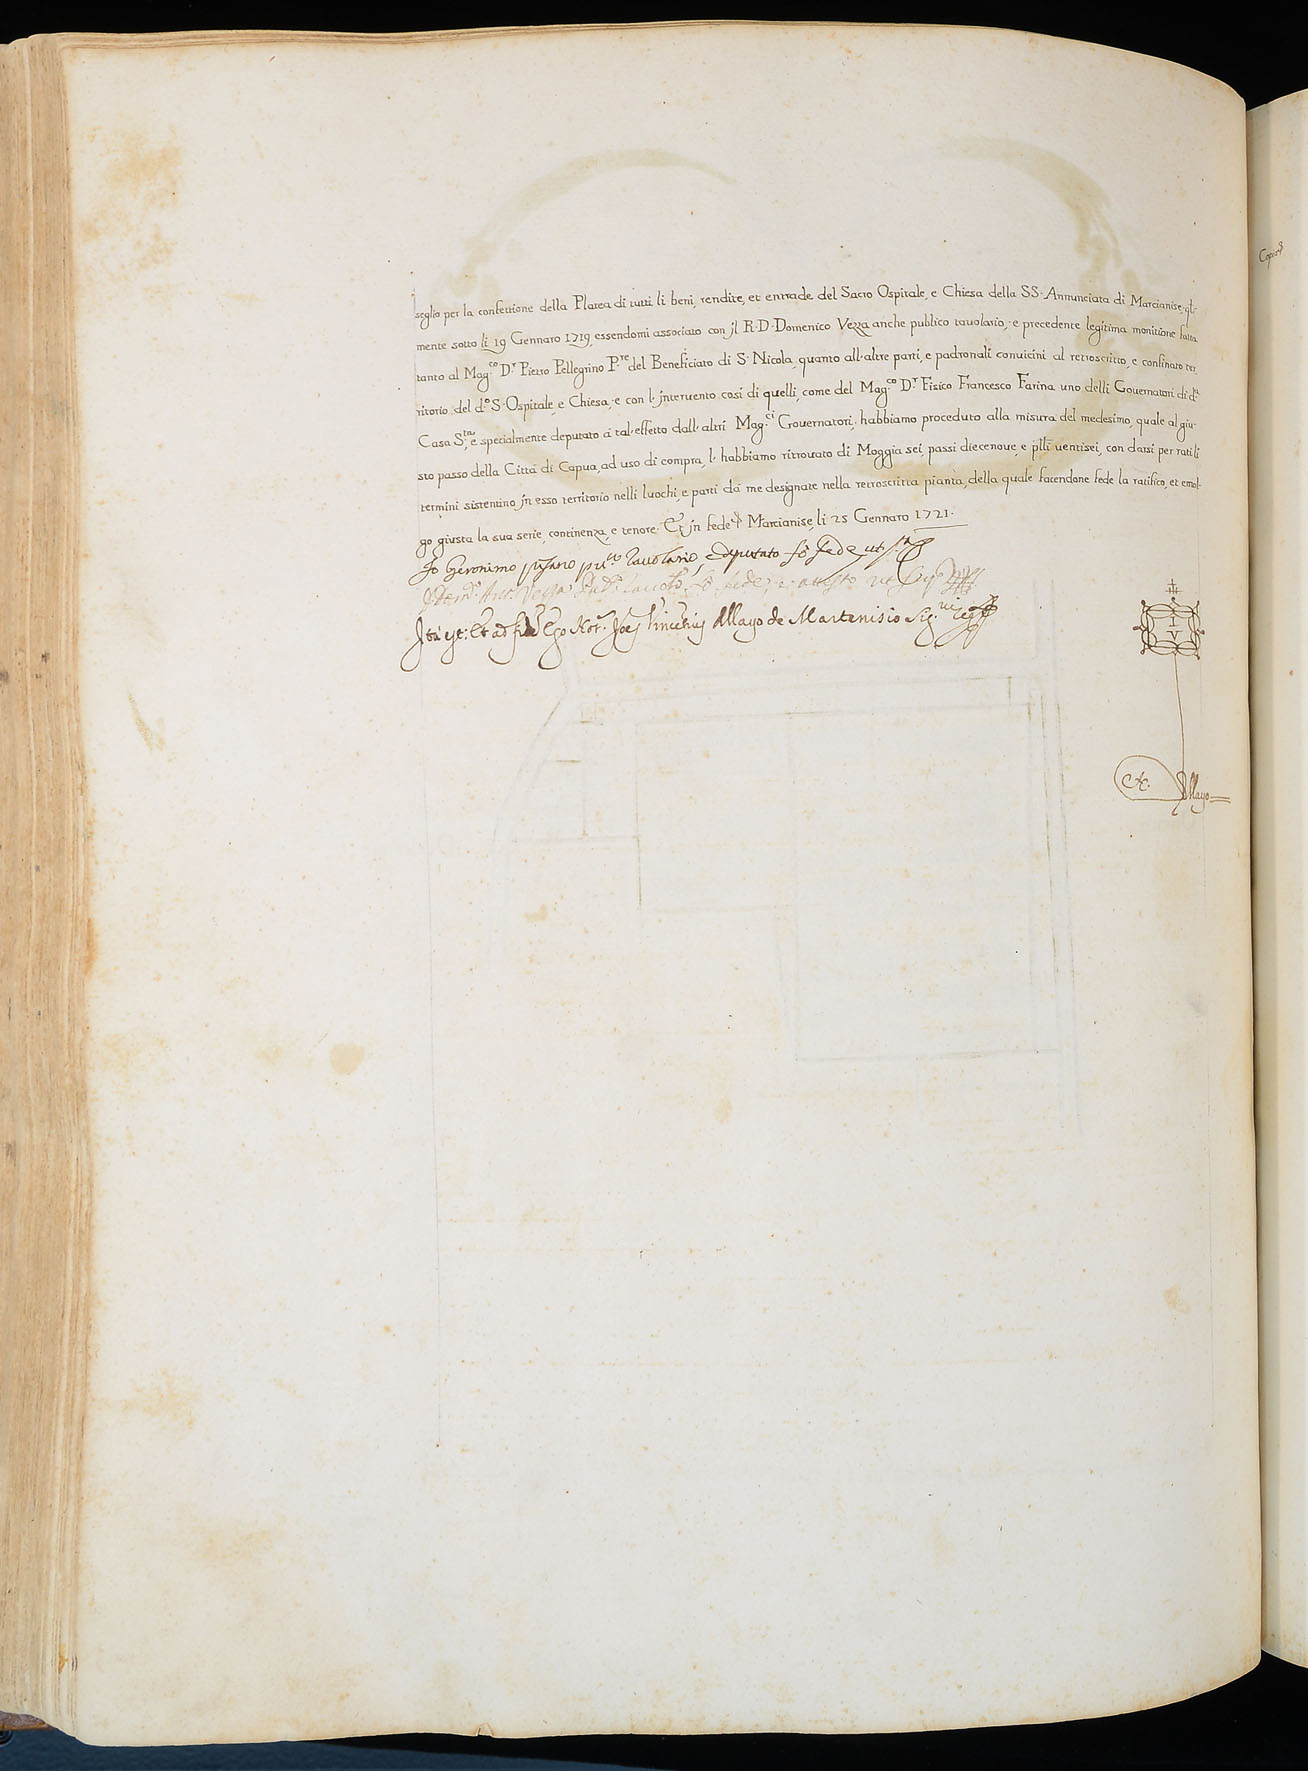 seglio per la confettione della Platea di tutti li beni, rendite, et entrade del Sacro Ospitale, e Chiesa della SS. Annunciata di Marcianise, ql-
mente sotto li 19 Gennaro 1719, essendomi associato con jl R. D. Domenico Vezza anche publico tauolario, e precedente legitima monitione fatta
tanto al Mag.co D.r Pietro Pellegrino P.re del Beneficiato di S. Nicola, quanto all'altre parti, e padronali conuicini al retroscritto, e confinato ter-
ritorio del d.o S. Ospitale, e Chiesa, e con l'jnteruento cosi di quelli, come del Mag.co D.r Fisico Francesco Farina uno delli Gouernatori di d.a
Casa S.ta, e specialmente deputato a tal'effetto dall'altri Mag.ci Gouernatori, habbiamo proceduto alla misura del medesimo, quale al giu-
sto passo della Città di Capua, ad uso di compra, l'habbiamo ritrouato di Moggia sei, passi diecenoue, e plli uentisei, con darsi per rati li
termini sistentino jn esso territorio nelli luochi, e parti da me designate nella retroscritta pianta, della quale facendone fede la ratifico, et emol-
go giusta la sua serie, continenza, e tenore. Et jn fede Marcianise, li 25 Gennaro 1721.
Io Geronimo pu.co Tauolario deputato fò fede ut s.a
fò fede, ut
Ita est: Et ad fidem Ego Not.r Joes Vincentius Mayo de Martenisio Sig.ui
I
V
Mayo